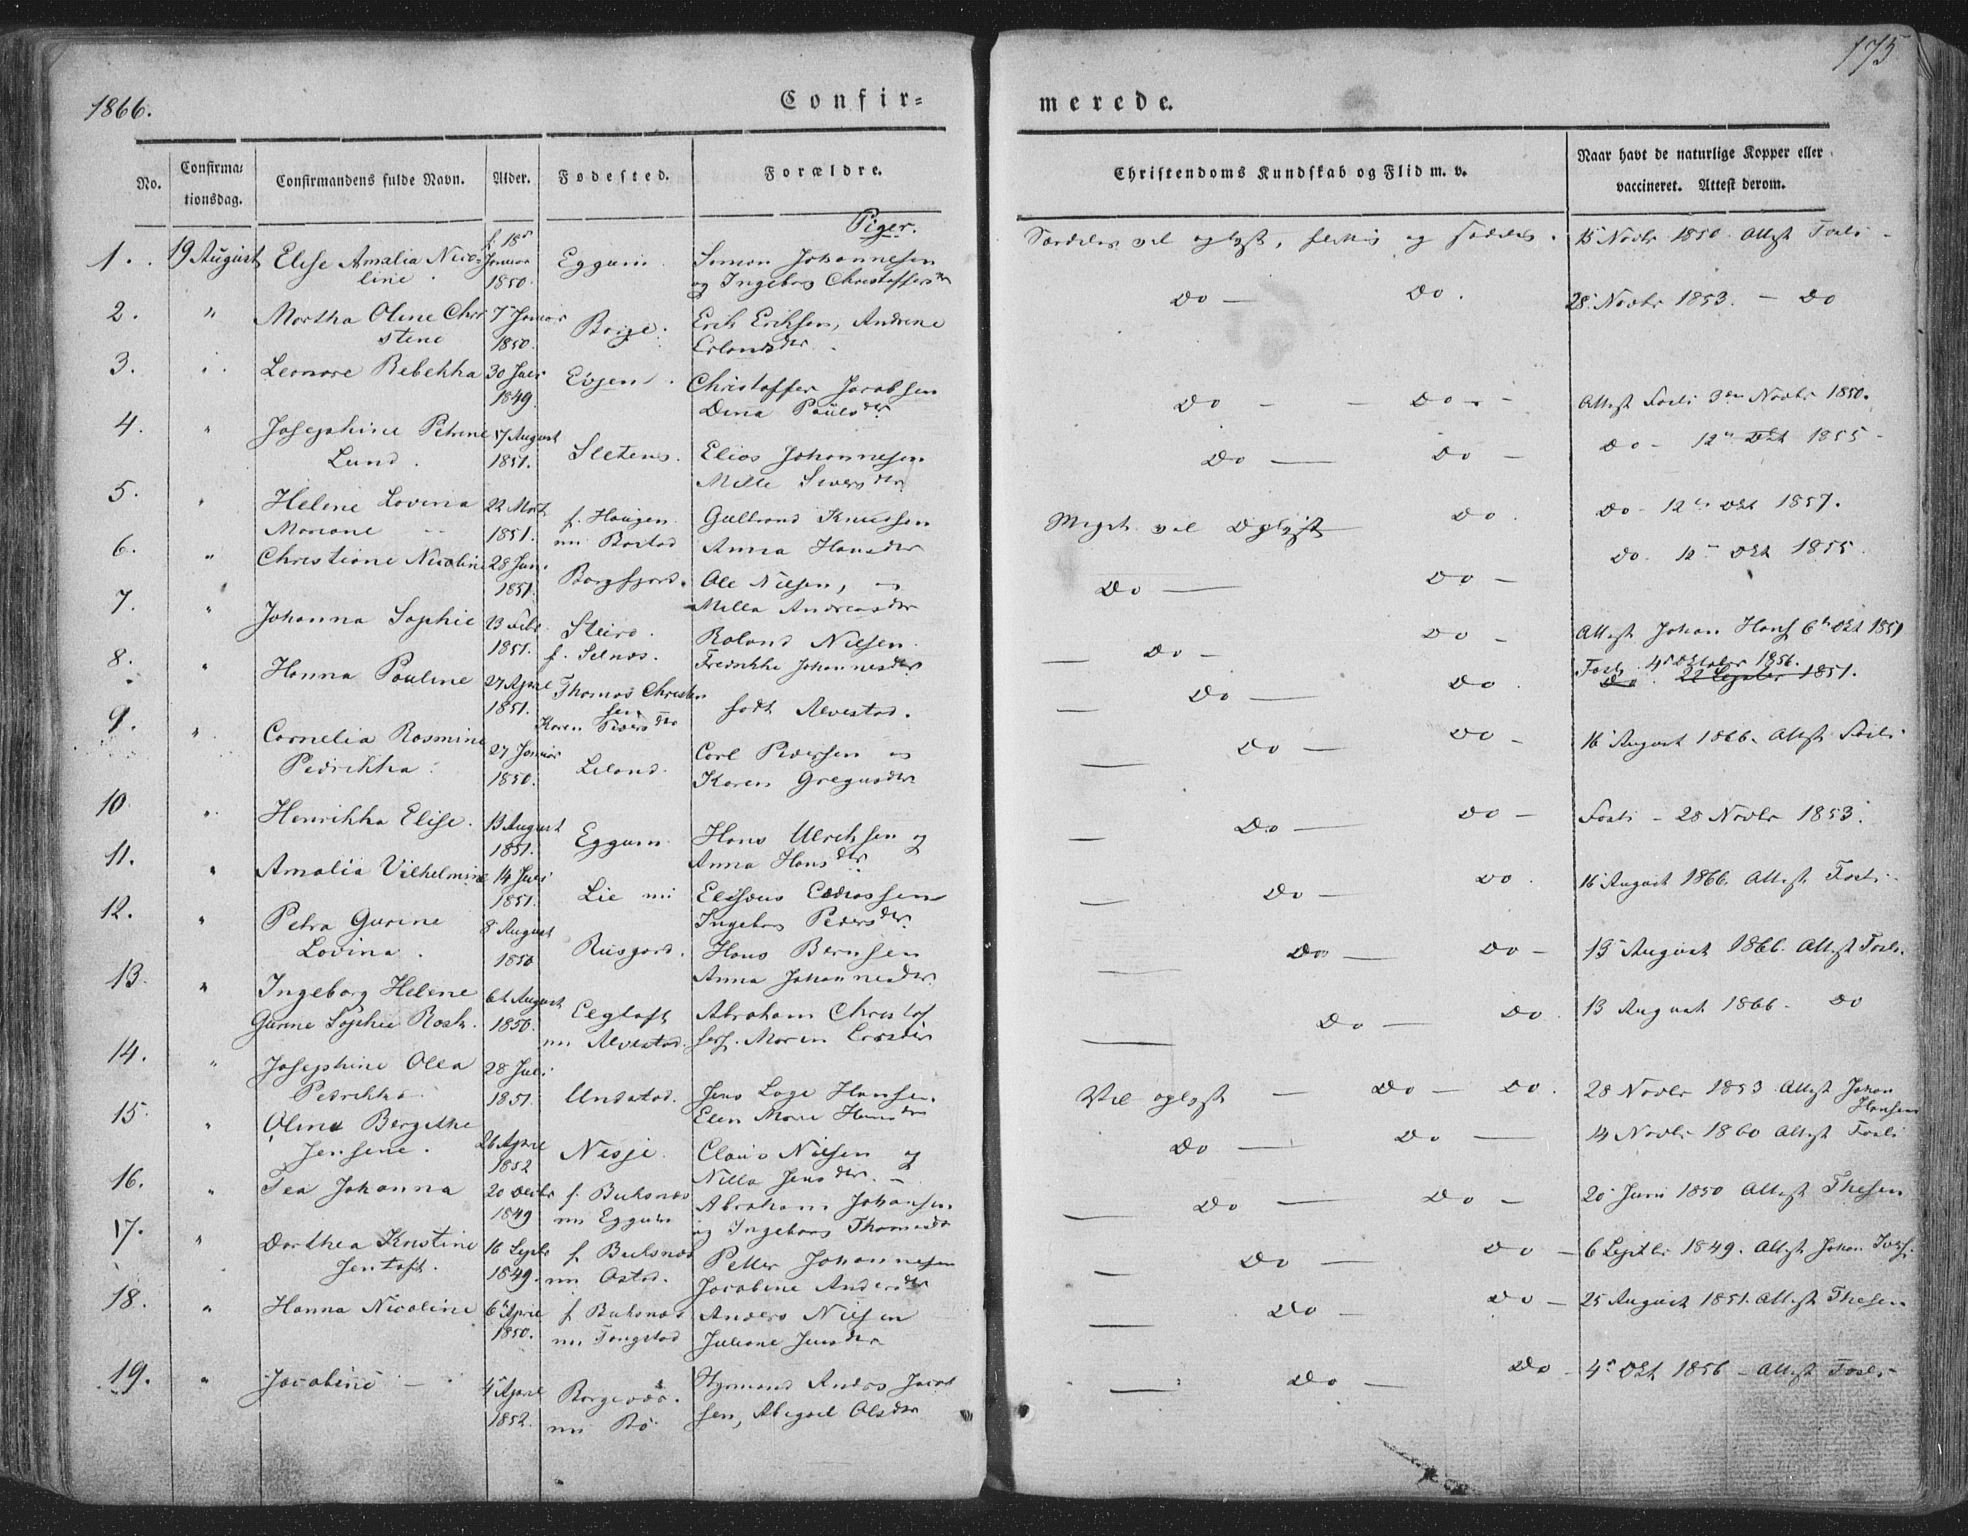 175
1866.
Confir=
merede.
No.
Confirma=
tionsdag.
Confirmandens fulde Navn.
Alder.
Fødested.
Forældre.
Christendoms Kundskab og Flid m. v.
Naar havt de naturlige Kopper eller
vaccineret. Attest derom.
Piger.
1. 19 August Elise Amalia Nico-
line
f. 18de Januar 1850.
Eggum
Simon Johannesen
og Ingeborg Christoffersdtr
Særdeles vel oplyst, flittig og sædelig.
15 Novbr 1850. Attest Fosli
2. " Martha Oline Chri
stine
7de Januar 1850.
Borge.
Erik Eriksen, Andrine
Erlandsdtr
Do — Do.
28 Novbr 1853. — Do
3. " Leonore Rebekka
30 Juli 1849.
Evjen.
Christoffer Jacobsen
Dina Paulsdtr
Do — — Do
Attest Fosli 3en Novbr 1850.
4. " Josephine Petrine
Lund.
17 August 1851.
Sletenes.
Elias Johannesen
Mille Siversdtr
Do — Do —
Do — 12te Okt 1855
5. " Helene Lovina
Mariane
22 Mart 1851.
f. Haugen
nu Borstad
Gultrand Knudsen
Anna Hansdtr
Meget vel oplyst — Do.
Do — 12te Okt 1857.
6. " Christiane Nicoline
28 Jan. 1851.
Borgfjord.
Ole Nilsen, og
Milla Andreasdtr
Do — Do —
Do. 12 Okt 1855.
7. " Johanna Sophie
13 Febr. 1851.
Steiro.
f. Selnæs.
Roland Nilsen
Fredrikke Johannesdtr
— Do — Do —
Attest Johan Hans 6te Okt 1851
8. " Hanna Pauline
27 April 1851.
Thomas Christen
sen
Karen Siversdtr
født Alvestad.
— Do — Do.
Fosli 4de Oktober 1856.
Do. 22 Septbr 1851.
9. " Cornelia Rasmine
Pedrikka.
27 Januar 1850.
Leland.
Carl Pedersen og
Karen Gregusdtr
— Do — Do —
16 August 1866. Attest Fosli
10. " Henrikka Elise.
13 August 1851.
Eggum
Hans Ulriksen og
Anna Hansdtr.
— Do — Do —
Fosli — 28 Novbr 1853.
11. " Amalia Vilhelmine
14 Juli 1851.
Lie nu
Elisæus
Ingebor Pedersdtr.
— Do — Do.
16 August 1866. Attest Fosli
12. " Petra Gurine
Lovina.
8 August 1850
Rusgard.
Hans Bernsen
Anna Johannesdtr.
— Do — Do —
13de August 1866. Attest Fosli.
13. " Ingeborg Helene
Gurine Sophie Rosk.
6te August 1850.
nu Alvestad.
Abraham Christof
fers. Maren
— Do — Do.
13 August 1866. Do
14. " Josephine Olea
Pedrikka
28 Juli 1851.
Unstad.
Jens Lage Hansen.
Elen Marie Hansdtr
Vel oplyst — Do — Do.
28 Novbr 1853 Attest Johan
Hansen
15. " Oline Bergithe
Jensine.
26 April 1852
Nesje.
Claus Nilsen og
Nilla Jensdtr.
Do — Do —
14 Novbr 1860 Attest Fosli
16. " Tea Johanna
20 Decbr 1849
f. Buksnæs
nu Eggum
Abraham Johansen
og Ingeborg Thomasdtr
— Do — Do —
20 Juni 1850 Attest Thesen
17. " Dorthea Kristine
Jentoft.
16 Septbr 1849.
f. Buksnæs
nu Ostad.
Petter Johannesen
Jacobine Andersdtr
— Do — Do —
6 Septbr 1849. Attest Johan Ivers.
18. " Hanna Nicoline
6te April 1850.
f. Buksnæs
nu Tangstad
Anders Nilsen
Juliane Jensdtr
— Do — Do —
25 August 1851. Attest Thesen
19. " Jacobine
4de April 1852.
Borgevær.
nu Bø
Sigmund Andrs Jacob
sen, Abigael Olsdtr
— Do — Do —
4de Okt 1856 — Attest Fosli